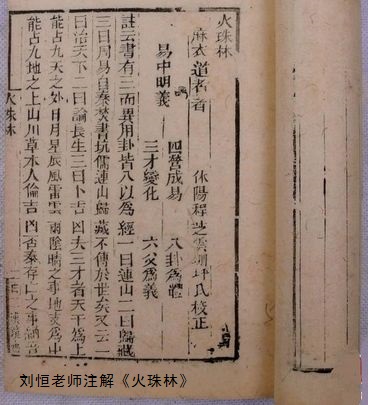 火珠林
麻衣道者著 休陽程芝雲瑚坪氏校正
易中明義 四營成易 八卦為體
三才變化 六爻為義
註云書有三而異用卦皆八以為經一曰連山二曰歸藏
三曰周易自秦焚書坑儒連山歸藏不傳於世矣又云一
曰治天下二曰論長生三曰卜吉凶夫三才者天干為上
能占九天之外日月星辰風雷雲雨陰晴之事地支為中
能占九地之上山川草木人倫吉凶否泰存亡之事納音
火珠林
刘恒老师注解《火珠林》